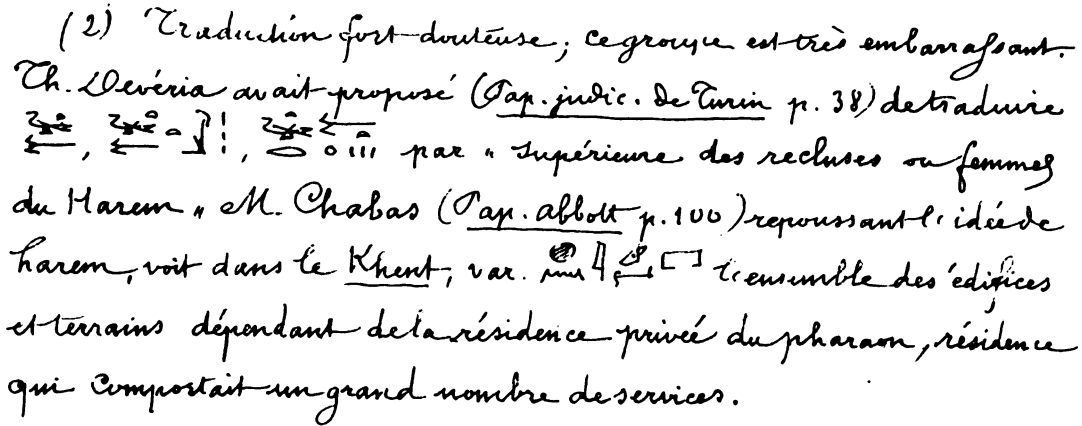 (2) Traduction fort douteuse; ce groupe est très embarrassant.
Th. Devéria avait proposé (Pap. judic. de Turin p. 38) de traduire
, , par " Supérieure des recluses ou femmes
du Harem " M. Chabas (Pap. abbott p. 100) repoussant l'idée de
harem, voit dans le Khent, var. l'ensemble des édifices
et terrains dépendant de la résidence privée du pharaon, résidence
qui comportait un grand nombre de services.